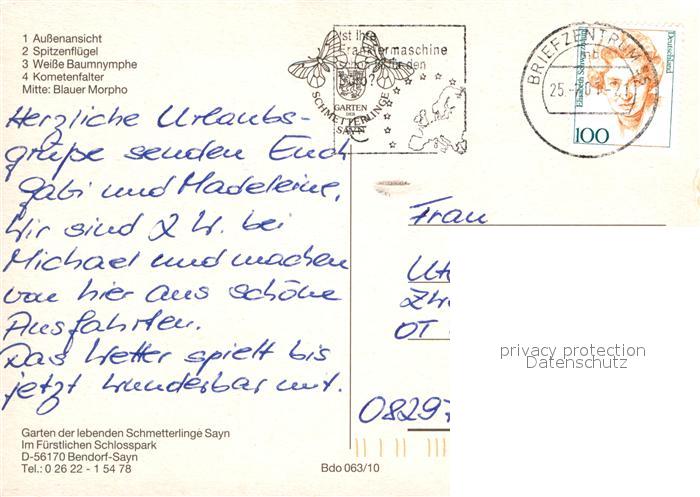 1 Außenansicht
2 Spitzenflügel
3 Weiße Baumnymphe
4 Kometenfalter
Mitte: Blauer Morpho
Herzliche Urlaubs-
grüße senden Euch
Gabi und Madeleine.
Wir sind 2 W. bei
Michael und machen
von hier aus schöne
Ausfahrten.
Das Wetter spielt bis
jetzt wunderbar mit.
Garten der lebenden Schmetterlinge Sayn
Im Fürstlichen Schlosspark
D-56170 Bendorf-Sayn
Tel.: 0 26 22 - 1 54 78
Bdo 063/10
Ist Ihre
Frankiermaschine
schon für den
SCHMETTERLINGE
GARTEN
DER
SAYN
BRIEFZENTRUM
25.
Elisabeth Schwarzhaupt
Deutschland
100
Frau
OT
0829
privacy protection
Datenschutz